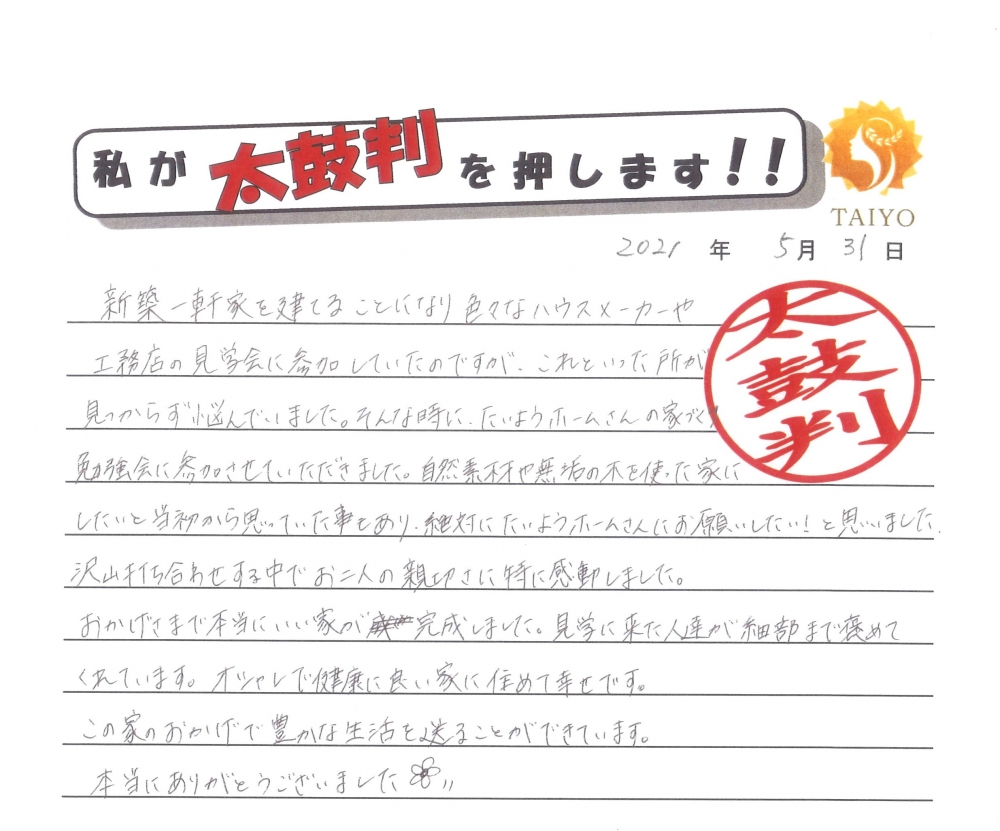 私が太鼓判を押します!!
TAIYO
2021年 5月 31日
新築一軒家を建てることになり色々なハウスメーカーや
工務店の見学会に参加していたのですが、これといった所が
見つからず悩んでいました。そんな時に、たいようホームさんの家づくり
勉強会に参加させていただきました。自然素材や無垢の木を使った家に
したいと当初から思っていた事もあり、絶対にたいようホームさんにお願いしたい!と思いました。
沢山打ち合わせする中でお二人の親切さに特に感動しました。
おかげさまで本当にいい家が完成しました。見学に来た人達が細部まで褒めて
くれています。オシャレで健康に良い家に住めて幸せです。
この家のおかげで豊かな生活を送ることができています。
本当にありがとうございました
太鼓判